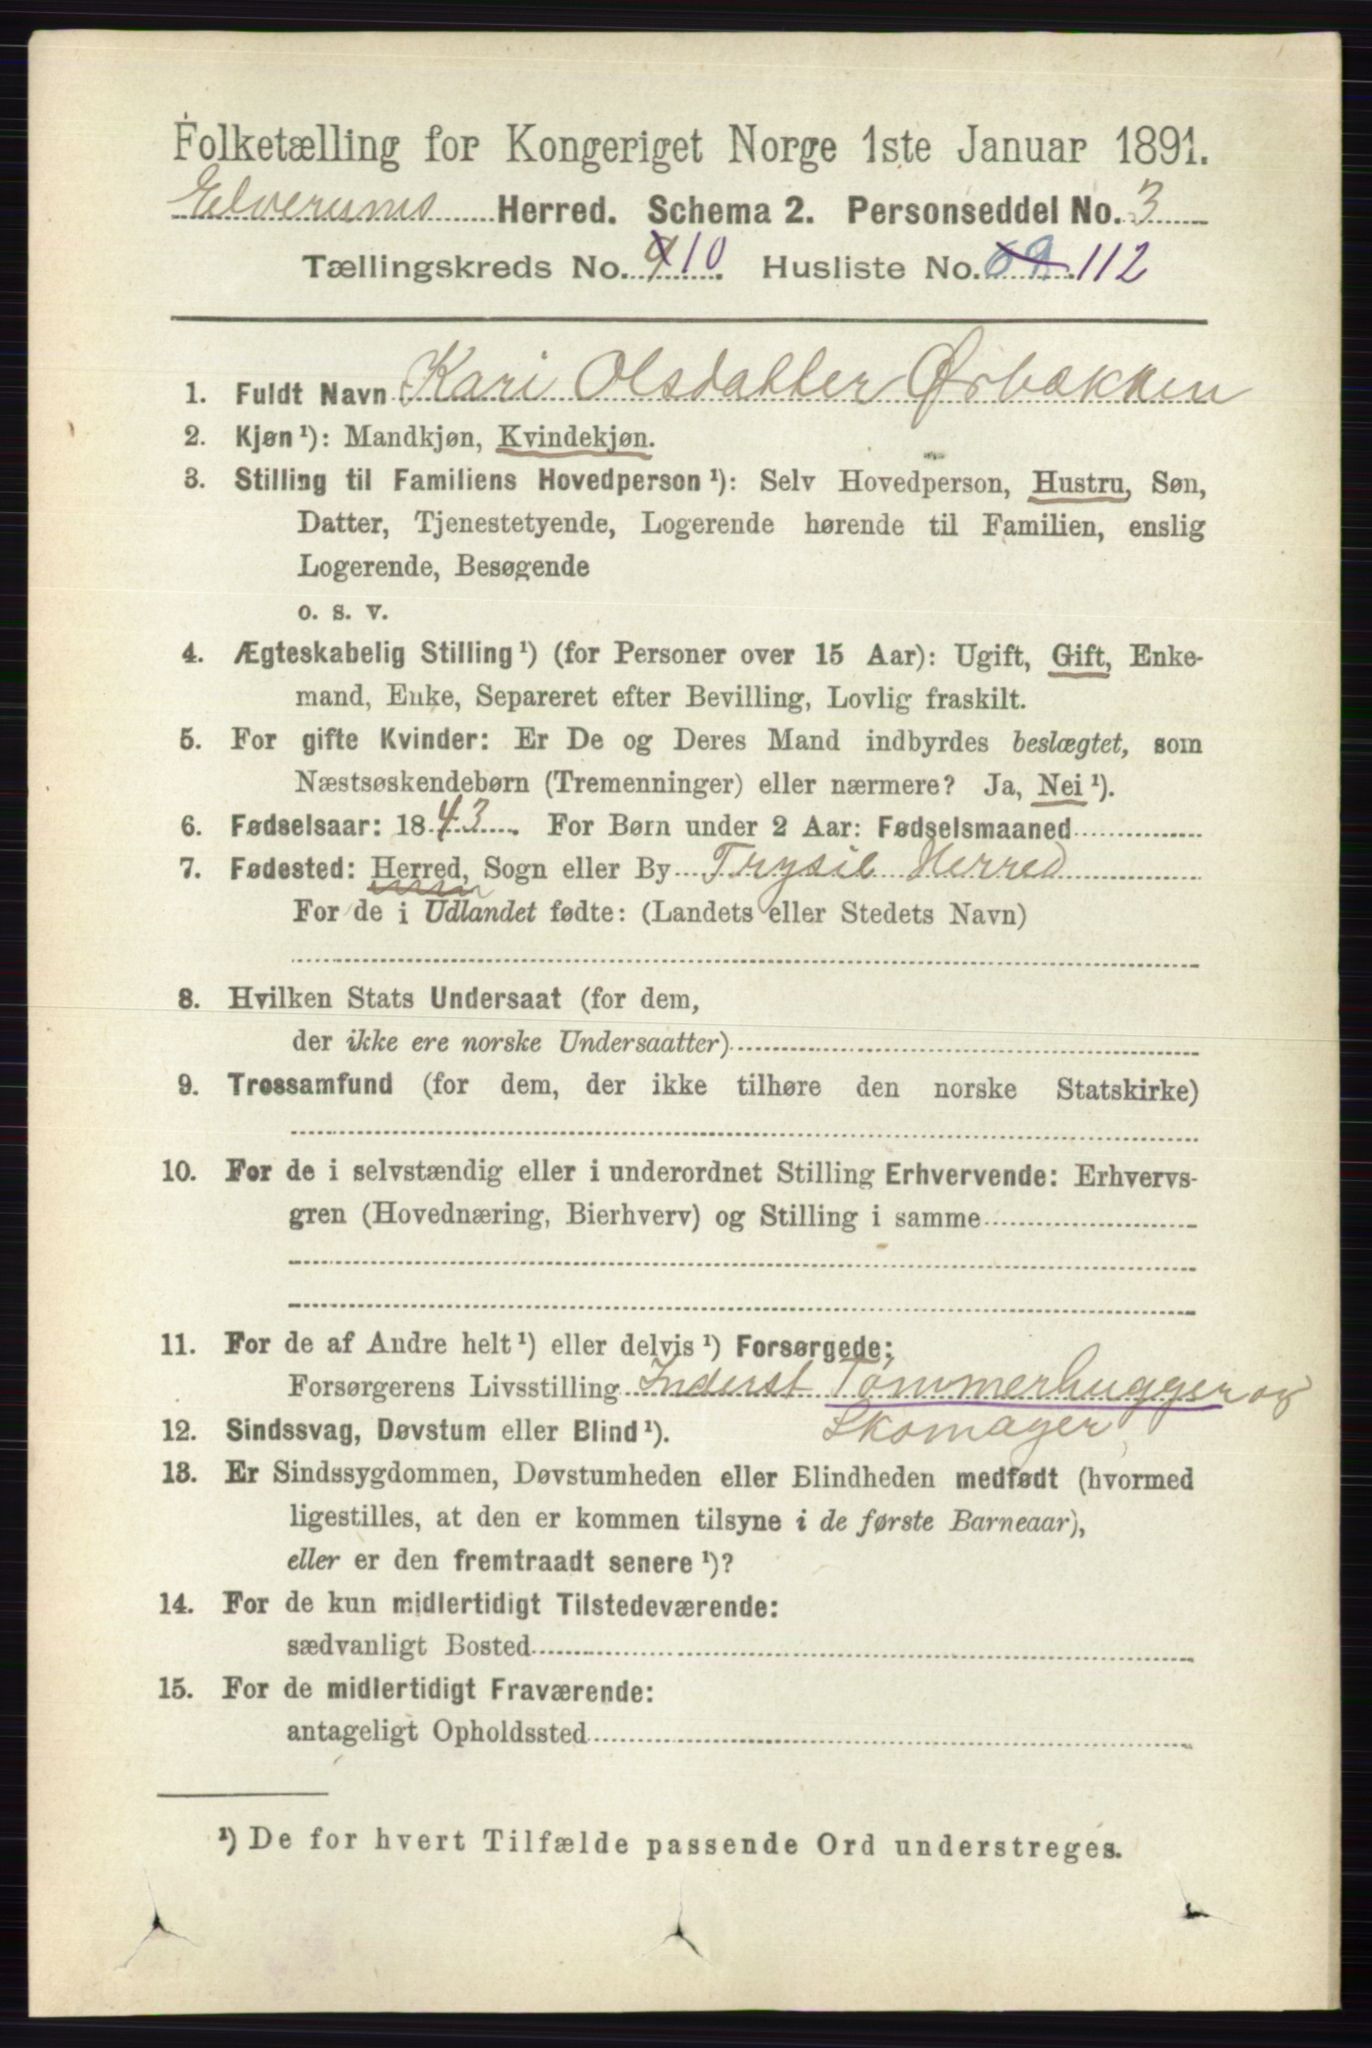 Folketælling for Kongeriget Norge 1ste Januar 1891.
Elverums Herred. Schema 2. Personseddel No. 3
Tællingskreds No. 9 10. Husliste No. 69 112
1. Fuldt Navn Kari Olsdatter Ørbækken
2. Kjøn¹): Mandkjøn, Kvindekjøn.
3. Stilling til Familiens Hovedperson¹): Selv Hovedperson, Hustru, Søn,
Datter, Tjenestetyende, Logerende hørende til Familien, enslig
Logerende, Besøgende
o. s. v.
4. Ægteskabelig Stilling¹) (for Personer over 15 Aar): Ugift, Gift, Enke-
mand, Enke, Separeret efter Bevilling, Lovlig fraskilt.
5. For gifte Kvinder: Er De og Deres Mand indbyrdes beslægtet, som
Næstsøskendebørn (Tremenninger) eller nærmere? Ja, Nei¹).
6. Fødselsaar: 1843. For Børn under 2 Aar: Fødselsmaaned
7. Fødested: Herred, Sogn eller By Trysil Herred
For de i Udlandet fødte: (Landets eller Stedets Navn)
8. Hvilken Stats Undersaat (for dem,
der ikke ere norske Undersaatter)
9. Trossamfund (for dem, der ikke tilhøre den norske Statskirke)
10. For de i selvstændig eller i underordnet Stilling Erhvervende: Erhvervs-
gren (Hovednæring, Bierhverv) og Stilling i samme
11. For de af Andre helt¹) eller delvis¹) Forsørgede:
Forsørgerens Livsstilling Inderst Tømmerhugger og
Skomager
12. Sindssvag, Døvstum eller Blind¹).
13. Er Sindssygdommen, Døvstumheden eller Blindheden medfødt (hvormed
ligestilles, at den er kommen tilsyne i de første Barneaar),
eller er den fremtraadt senere¹)?
14. For de kun midlertidigt Tilstedeværende:
sædvanligt Bosted
15. For de midlertidigt Fraværende:
antageligt Opholdssted
¹) De for hvert Tilfælde passende Ord understreges.